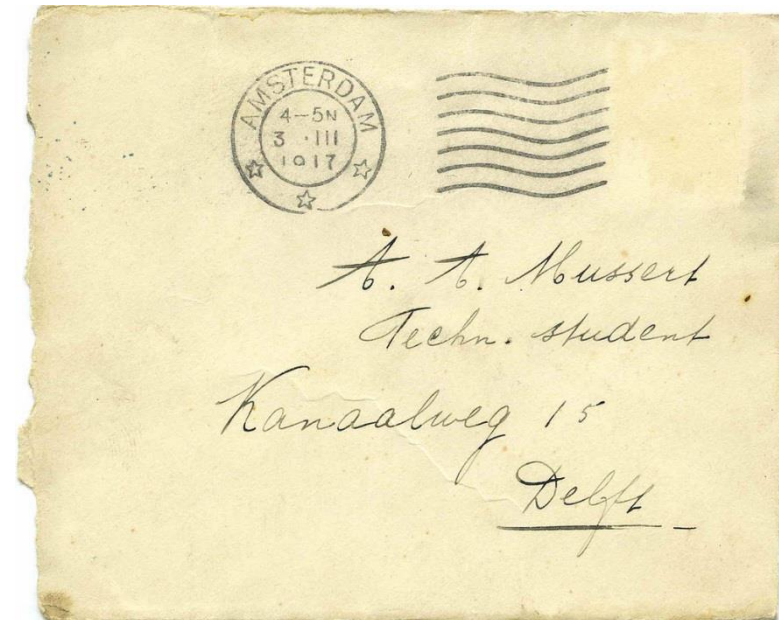 AMSTERDAM
4-5N
3 ·III
1917
A. A. Mussert
Techn. student
Kanaalweg 15
Delft